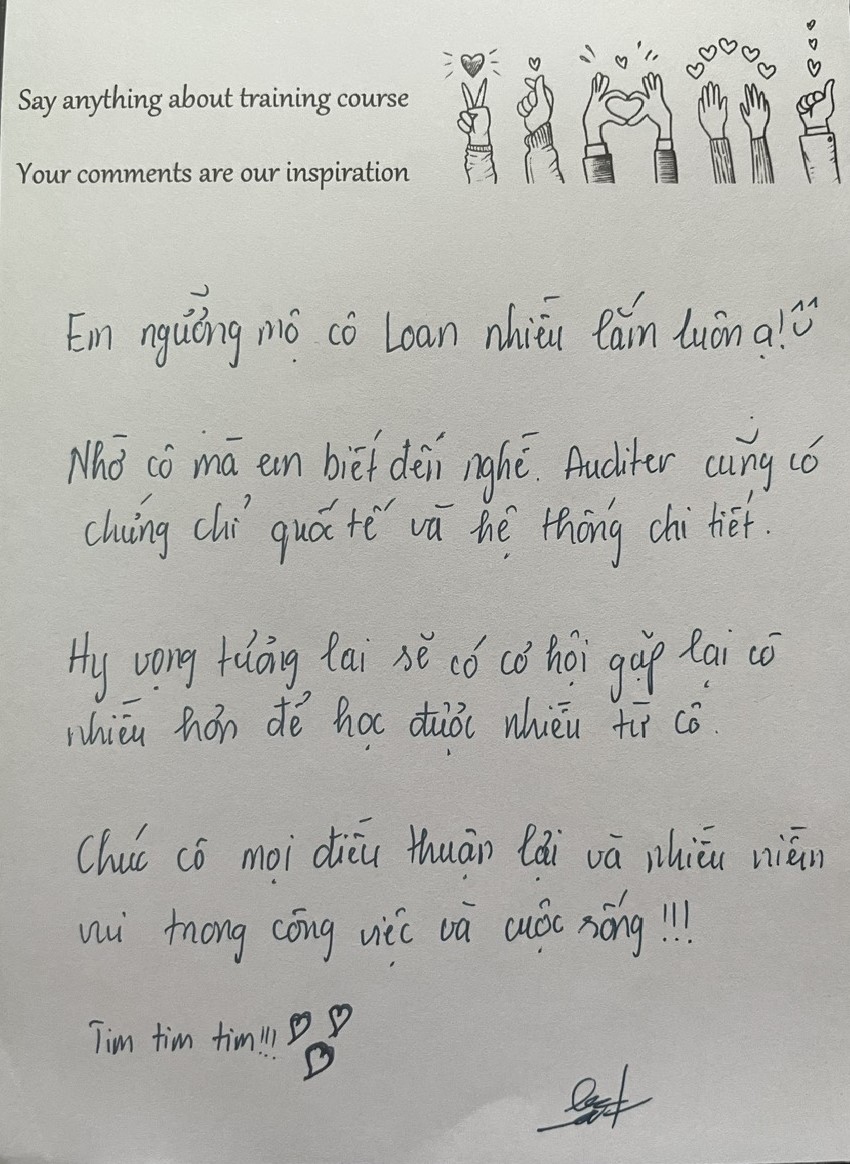 Say anything about training course
Your comments are our inspiration
Em ngưỡng mộ cô Loan nhiều lắm luôn ạ!
Nhờ cô mà em biết đến nghề. Auditer cũng có
chứng chỉ quốc tế và hệ thống chi tiết.
Hy vọng tương lai sẽ có cơ hội gặp lại cô
nhiều hơn để học được nhiều từ cô.
Chúc cô mọi điều thuận lợi và nhiều niềm
vui trong công việc và cuộc sống!!!
Tim tim tim!!!